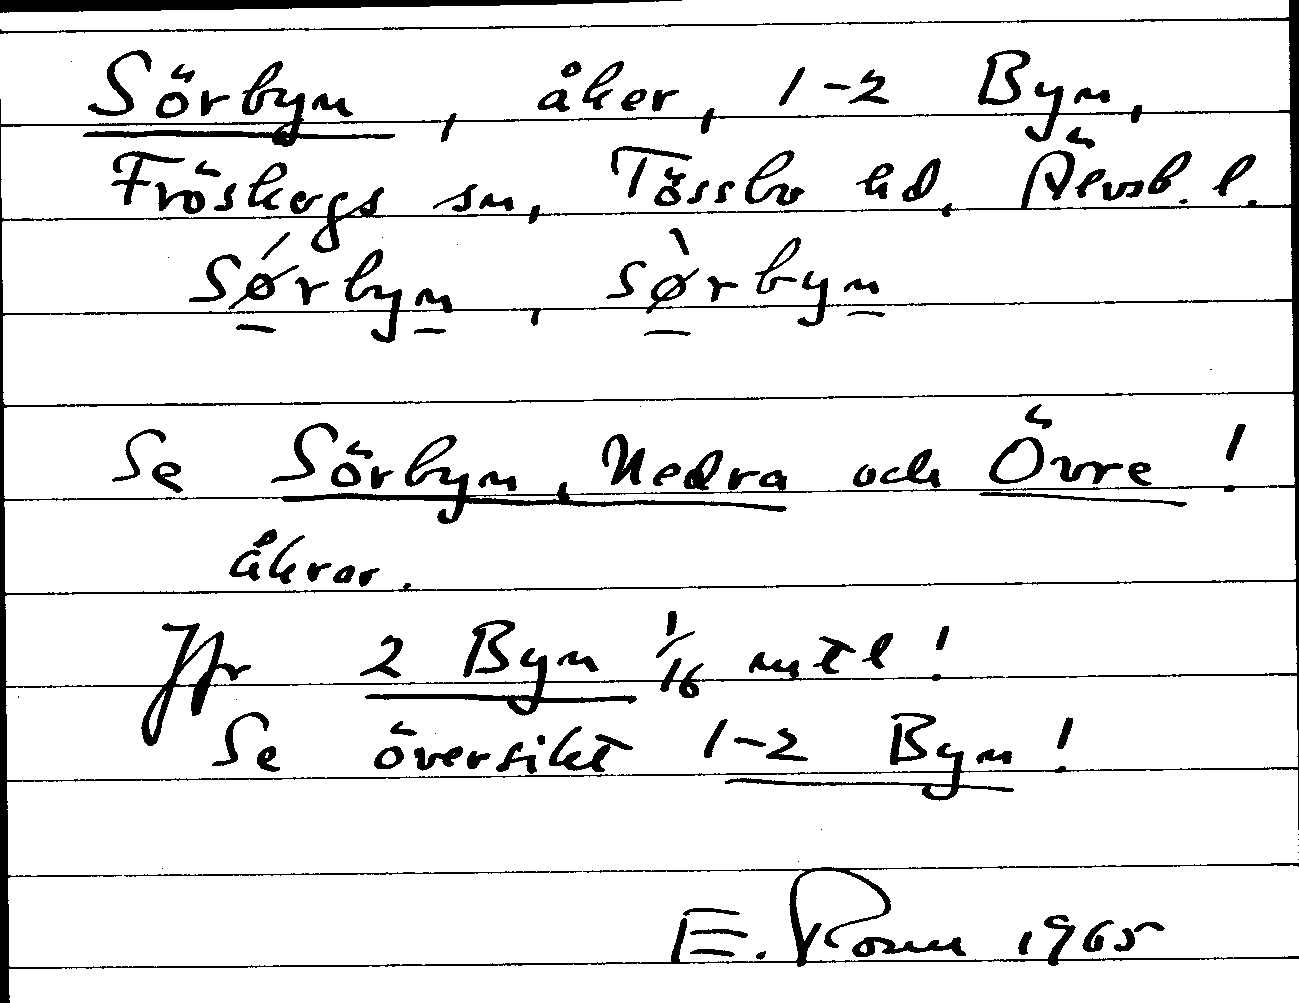 Sörbyn, åker, 1-2 Byn,
Fröskogs sn, Tössbo hd, Älvsb. l.
Sǿrbyn, sø̀rbyn
Se Sörbyn, Nedra och Övre!
åkrar.
Jfr 2 Byn 1/16 mtl!
Se översikt 1-2 Byn!
E. Rosen 1965